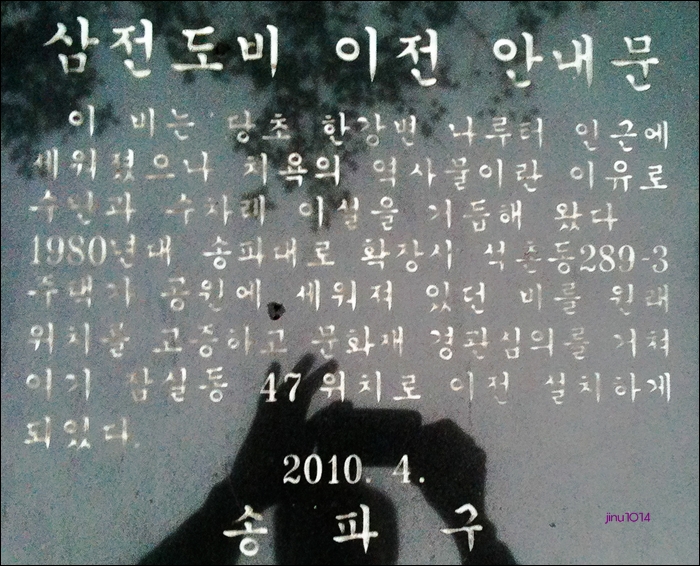 삼전도비 이전 안내문
이 비는 당초 한강변 나루터 인근에
세워졌으나 치욕의 역사물이란 이유로
수난과 수차례 이설을 거듭해 왔다
1980년대 송파대로 확장시 석촌동289-3
주택가 공원에 세워져 있던 비를 원래
위치를 고증하고 문화재 경관심의를 거쳐
여기 잠실동 47 위치로 이전 설치하게
되었다.
2010. 4.
송 파 구
jinu1014